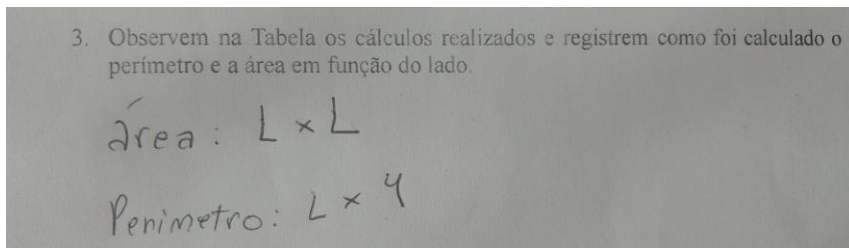 3. Observem na Tabela os cálculos realizados e registrem como foi calculado o
perímetro e a área em função do lado.
área: L x L
Perimetro: L x 4